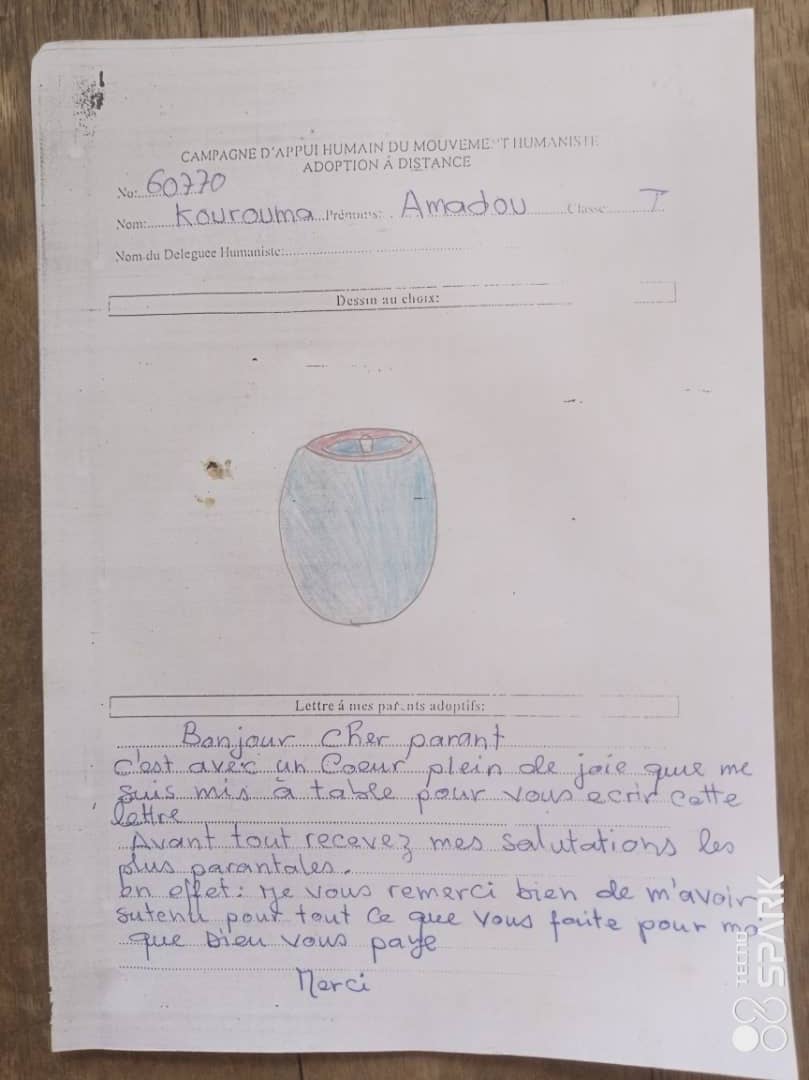 CAMPAGNE D'APPUI HUMAIN DU MOUVEMENT HUMANISTE
ADOPTION Á DISTANCE
No: 60770
Nom: Kourouma Prénoms: Amadou Classe: T
Nom du Deleguee Humaniste:
Dessin au choix:
Lettre á mes parents adoptifs:
Banjour Cher parant
C'est avec un Coeur plein de joie quie me
suis mis à table pour vous ecrir cette
lettre
Avant tout recevez mes salutations les
plus parantales.
En effet: Je vous remerci bien de m'avoir
sutenu pour tout ce que vous faite pour moi
que Dieu vous paye
Merci
TECNO
SPARK